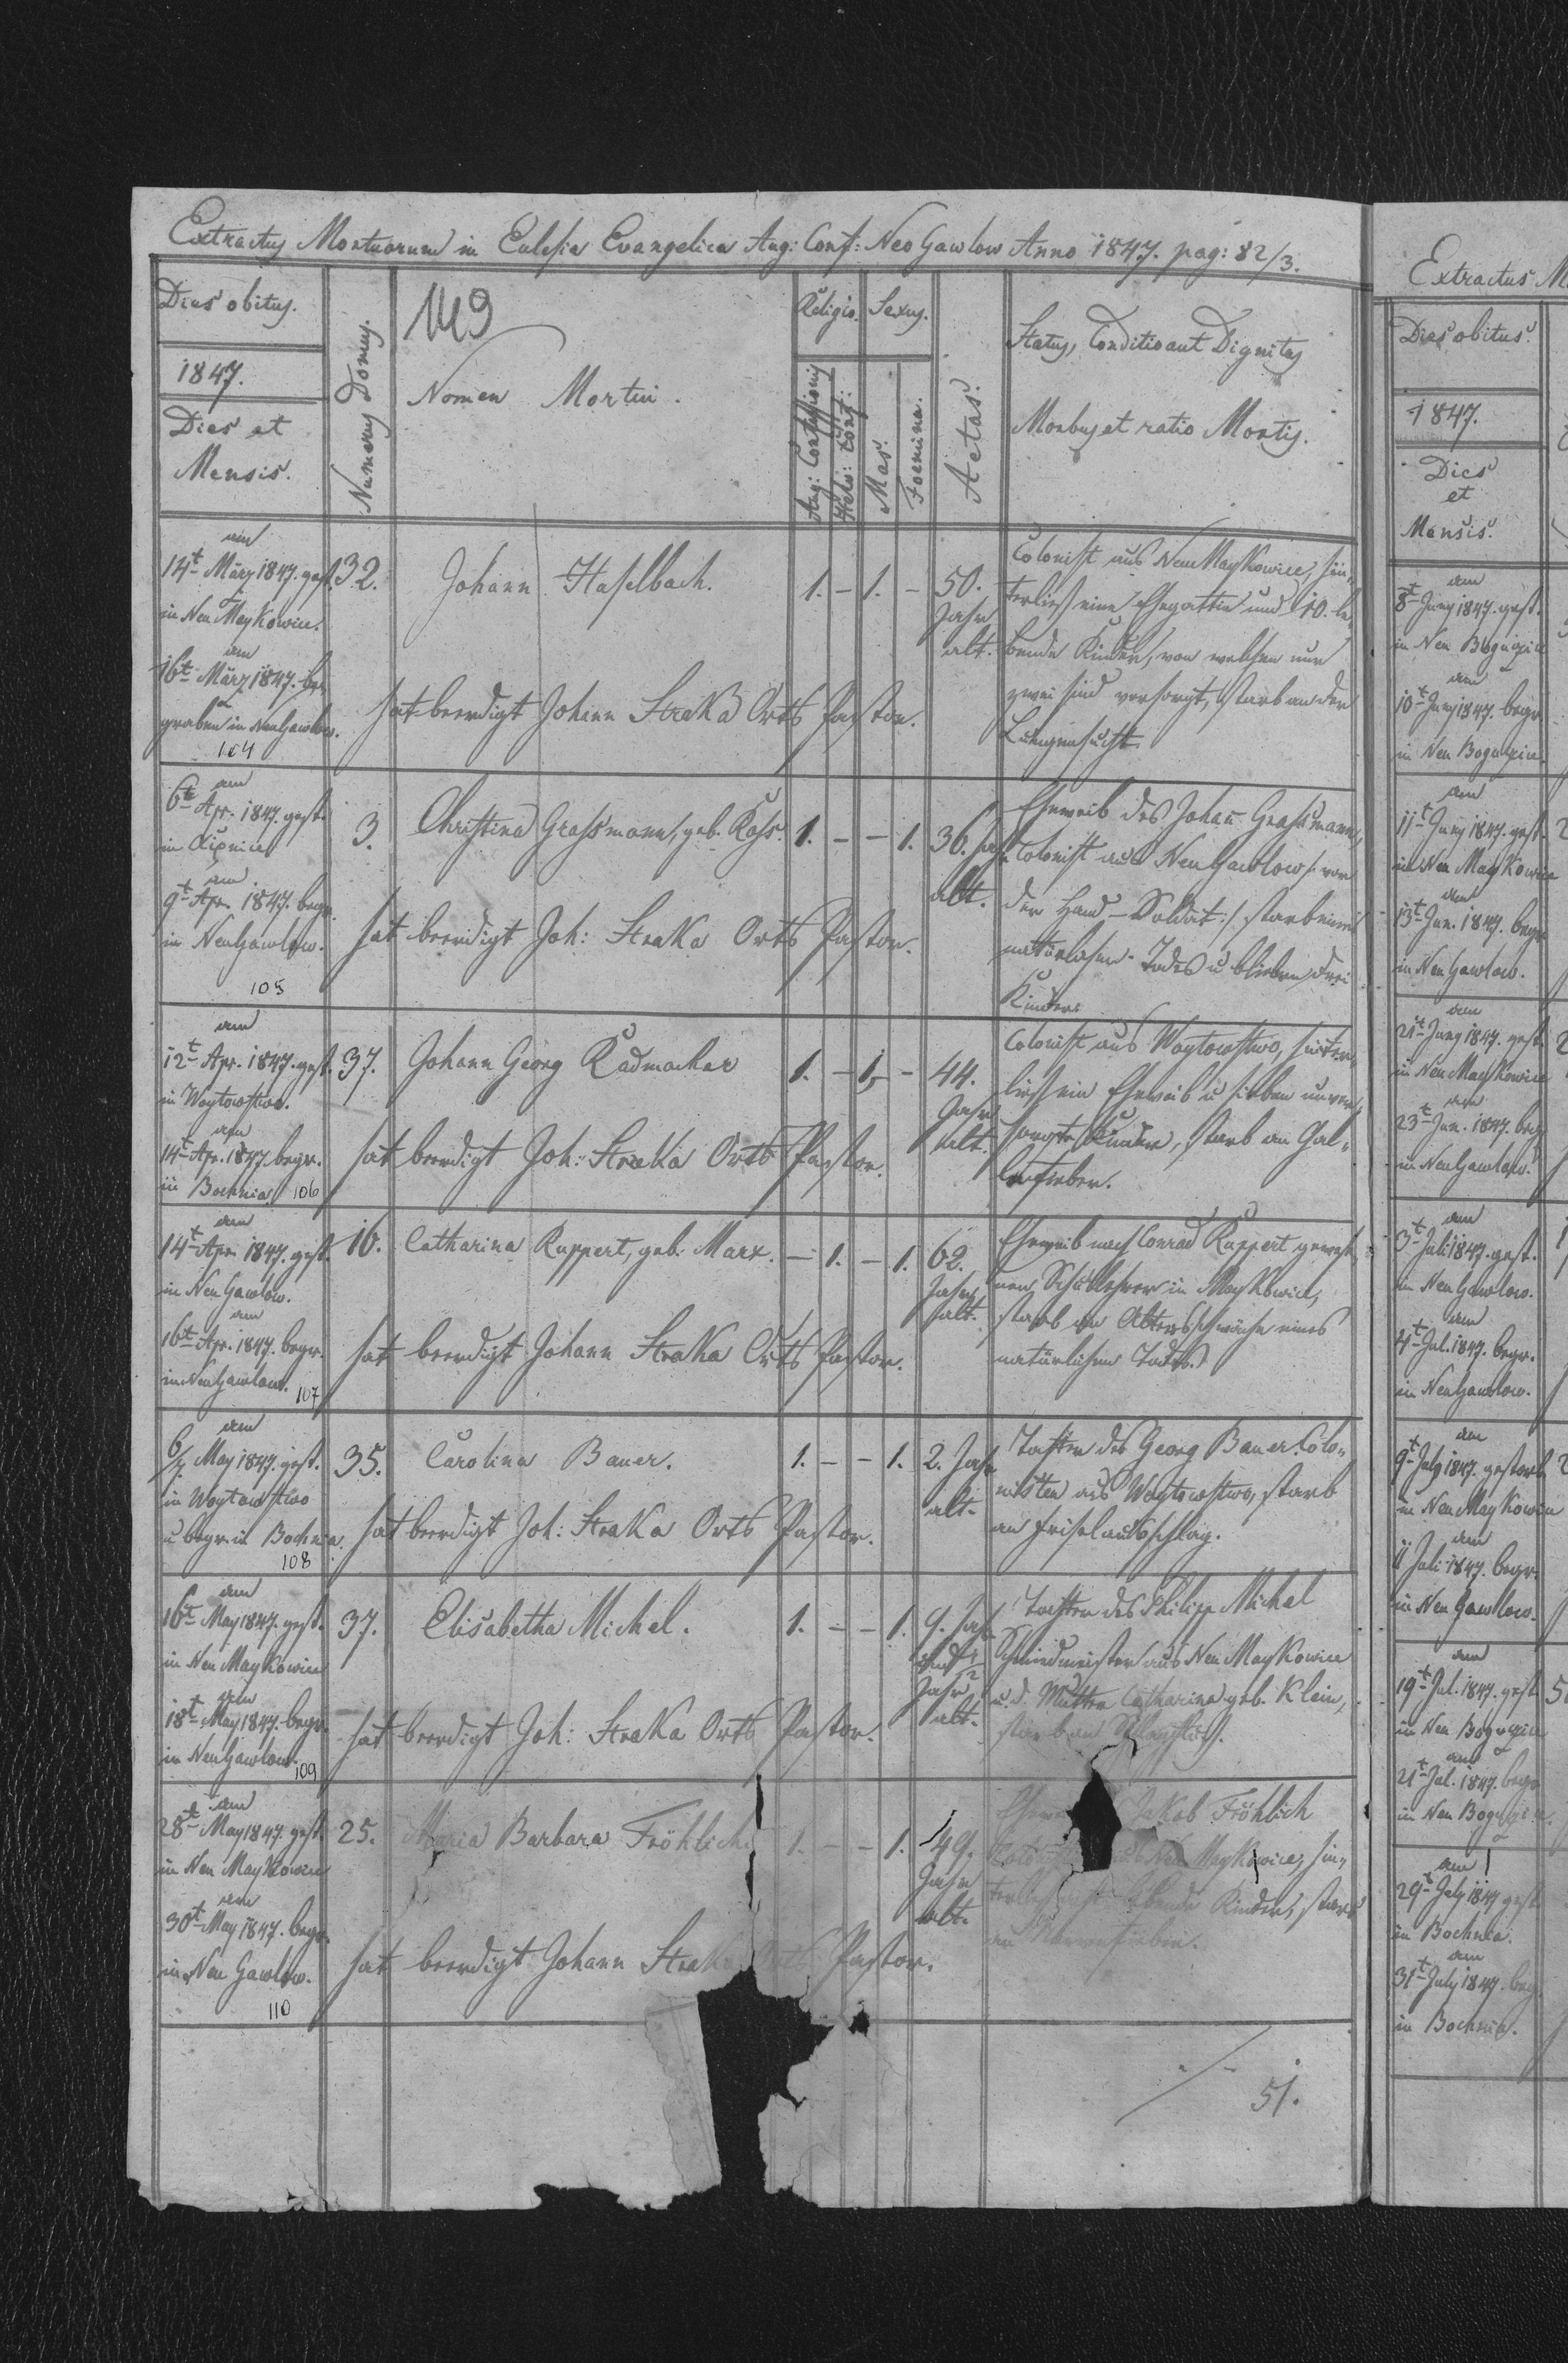 Extractus Mortuorum in Eclesia Evangelica Aug: Conf: Neo Gawlow Anno 1847. pag: 82/3.
Dies obitus.
1847.
Dies et
Mensis.
Numerus Domus.
149
Nomen Mortui.
Religio.
Aug: Confessionis
Helv: Conf:
Sexus.
Mas.
Foemina.
Aetas.
Status, Conditio aut Dignitas
Morbus et ratio Mortis.
am
14t März 1847. gest.
in Neu MayKowice.
am
16t März 1847. be-
graben in NeuGawlow.
104
32.
Johann Haselbach.
1. - 1. -
50.
Jahr
alt.
Colonist aus Neu MayKowice, hin-
terließ eine Ehegattin und 10. le-
bende Kinder, von welchen nur
zwei sind versorgt, starb an der
Lungensucht.
hat beerdigt Johann StraKa Orts Pastor.
am
6te Apr. 1847. gest.
in Lipnica
am
9t Apr. 1847. begr.
in NeuGawlow.
105
3.
Christina Grassmann, geb. Kass.
1. - - 1.
36. Jahr
alt.
Eheweib des Johan Grassmann,
Colonist aus NeuGawlow /: von
der Hand - Soldat :/ starb eines
natürlichen Todes u blieben drei
Kinder.
hat beerdigt Joh: StraKa Orts Pastor.
am
12t Apr. 1847. gest.
in Woytowstwo.
am
14t Apr. 1847 begr.
in Bochnia 106
37.
Johann Georg Radmacher
1. - 1. -
44.
Jahr
alt.
Colonist aus Woytowstwo, hinter-
ließ ein Eheweib u sieben unver-
sorgte Kinder, starb an Gal-
lenfieber.
hat beerdigt Joh: StraKa Orts Pastor.
am
14t Apr 1847. gest.
in Neu Gawlow.
am
16t Apr. 1847. begr.
in NeuGawlow. 107
16.
Catharina Ruppert, geb. Marx.
- 1. - 1.
62.
Jahr
alt.
Eheweib nach Conrad Ruppert gewese-
nen Schullehrer in MayKowice,
starb an Altersschwäche eines
natürlichen Todes.
hat beerdigt Johann StraKa Orts Pastor.
am
6/7. May 1847. gest.
in Woytowstwo
u begr. in Bochnia.
108
35.
Carolina Bauer.
1. - - 1.
2. Jahr
alt.
Tochter des Georg Bauer Colo-
nisten aus Woytowstwo, starb
an Friselausschlag.
hat beerdigt Joh: StraKa Orts Pastor.
am
16t May 1847. gest.
in Neu MayKowice
am
18t May 1847. begr.
in NeuGawlow. 109
37.
Elisabetha Michel.
1. - - 1.
9. Jahr
und ½
Jahr
alt.
Tochter des Philipp Michel
Schmiedmeister aus Neu MayKowice
u. d. Mutter Catharina geb. Klein,
starb an
hat beerdigt Joh: StraKa Orts Pastor.
am
28t May 1847. gest.
in Neu MayKowice
am
30t May 1847. begr.
in Neu Gawlow.
110
25.
Maria Barbara Fröhlich.
1. - - 1.
49.
Jahr
alt.
Jakob Fröhlich
Neu MayKowice, hin-
lebende Kinder, starb
an Nervenfieber.
hat beerdigt Johann StraKa Orts Pastor.
./.
51.
Extractus M
Dies obitus.
1847.
Dies
et
Mensis.
am
8t Juny 1847. gest.
in Neu Bogucice
am
10t Juny 1847. begr.
in Neu Bogucice.
am
11t Juny 1847. gest.
in Neu MayKowice
am
13t Jun. 1847. begr
in Neu Gawlow.
am
21t Juny 1847. gest.
in Neu MayKowice
am
23t Jun. 1847. beg
in NeuGawlow.
am
3t Juli 1847. gest.
in Neu Gawlow.
am
4t Jul. 1847. begr.
in NeuGawlow.
am
9t July 1847. gestorb
in Neu MayKowice
am
11 Juli 1847. begr.
in Neu Gawlow.
am
19t Jul. 1847. gest
in Neu Bogucice
am
21t Jul. 1847. begr
in Neu Bogucice.
am
29t July 1847 gest
in Bochnia.
am
31t July 1847. beg
in Bochnia.